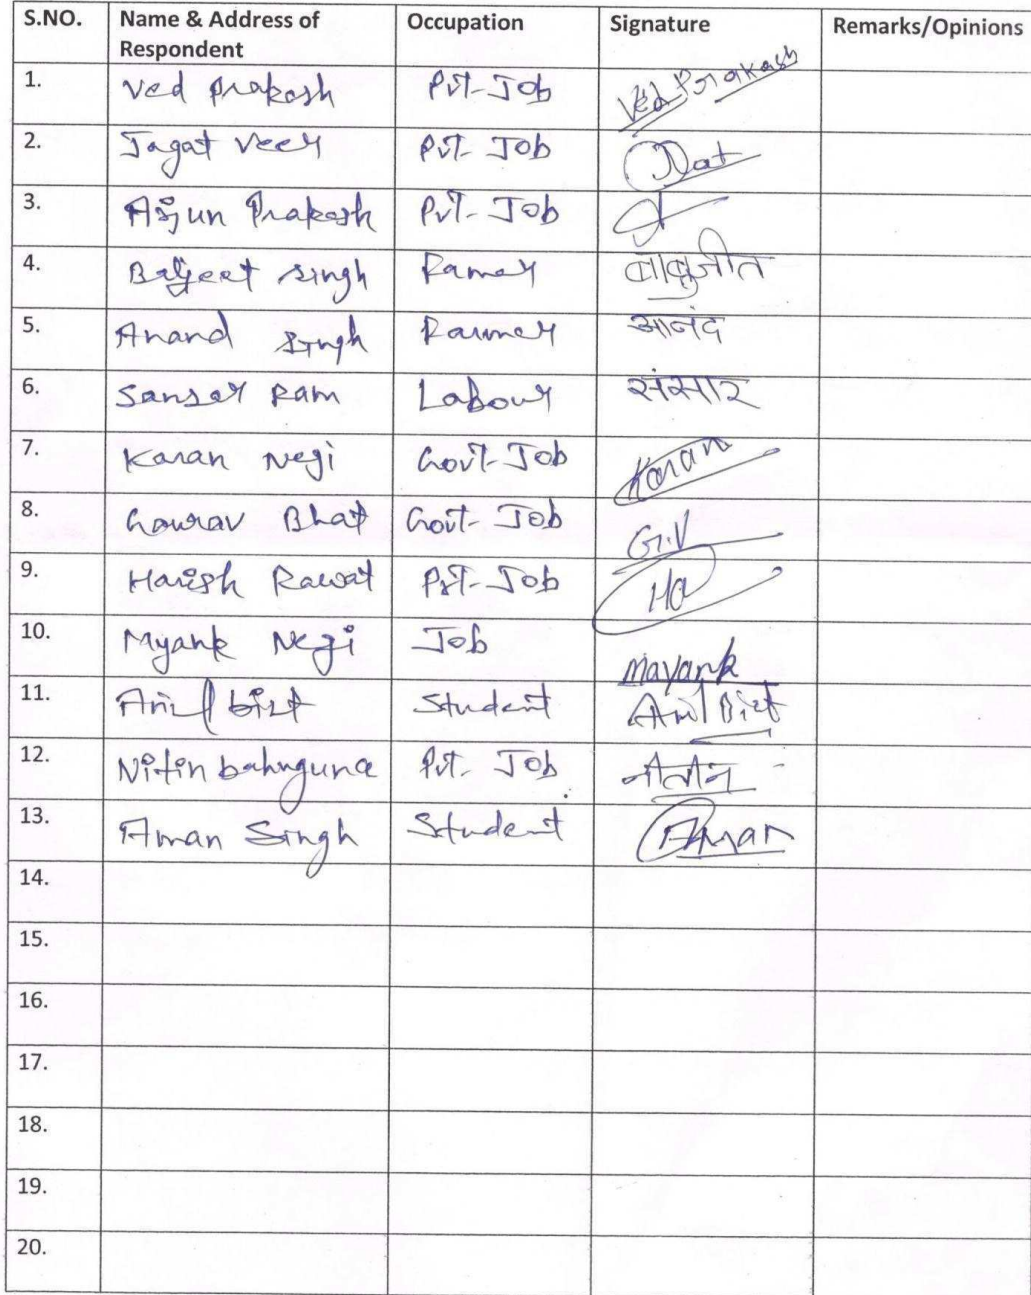 S.NO. Name & Address of Respondent Occupation Signature Remarks/Opinions
1. Ved Prakash Pvt-Job Ved Prakash
2. Jagat Veer Pvt-Job
3. Arjun Prakash Pvt-Job
4. Baljeet Singh
5. Anand Singh आनंद
6. Sansar Ram Labour संसार
7. Karan Negi Govt-Job Karan
8. Gaurav Bhat Govt-Job G.V
9. Harish Rawat Pvt-Job Ha
10. Myank Negi Job Mayank
11. Anil bist Student Anil Bist
12. Nitin bahuguna Pvt. Job
13. Aman Singh Student Aman
14.
15.
16.
17.
18.
19.
20.